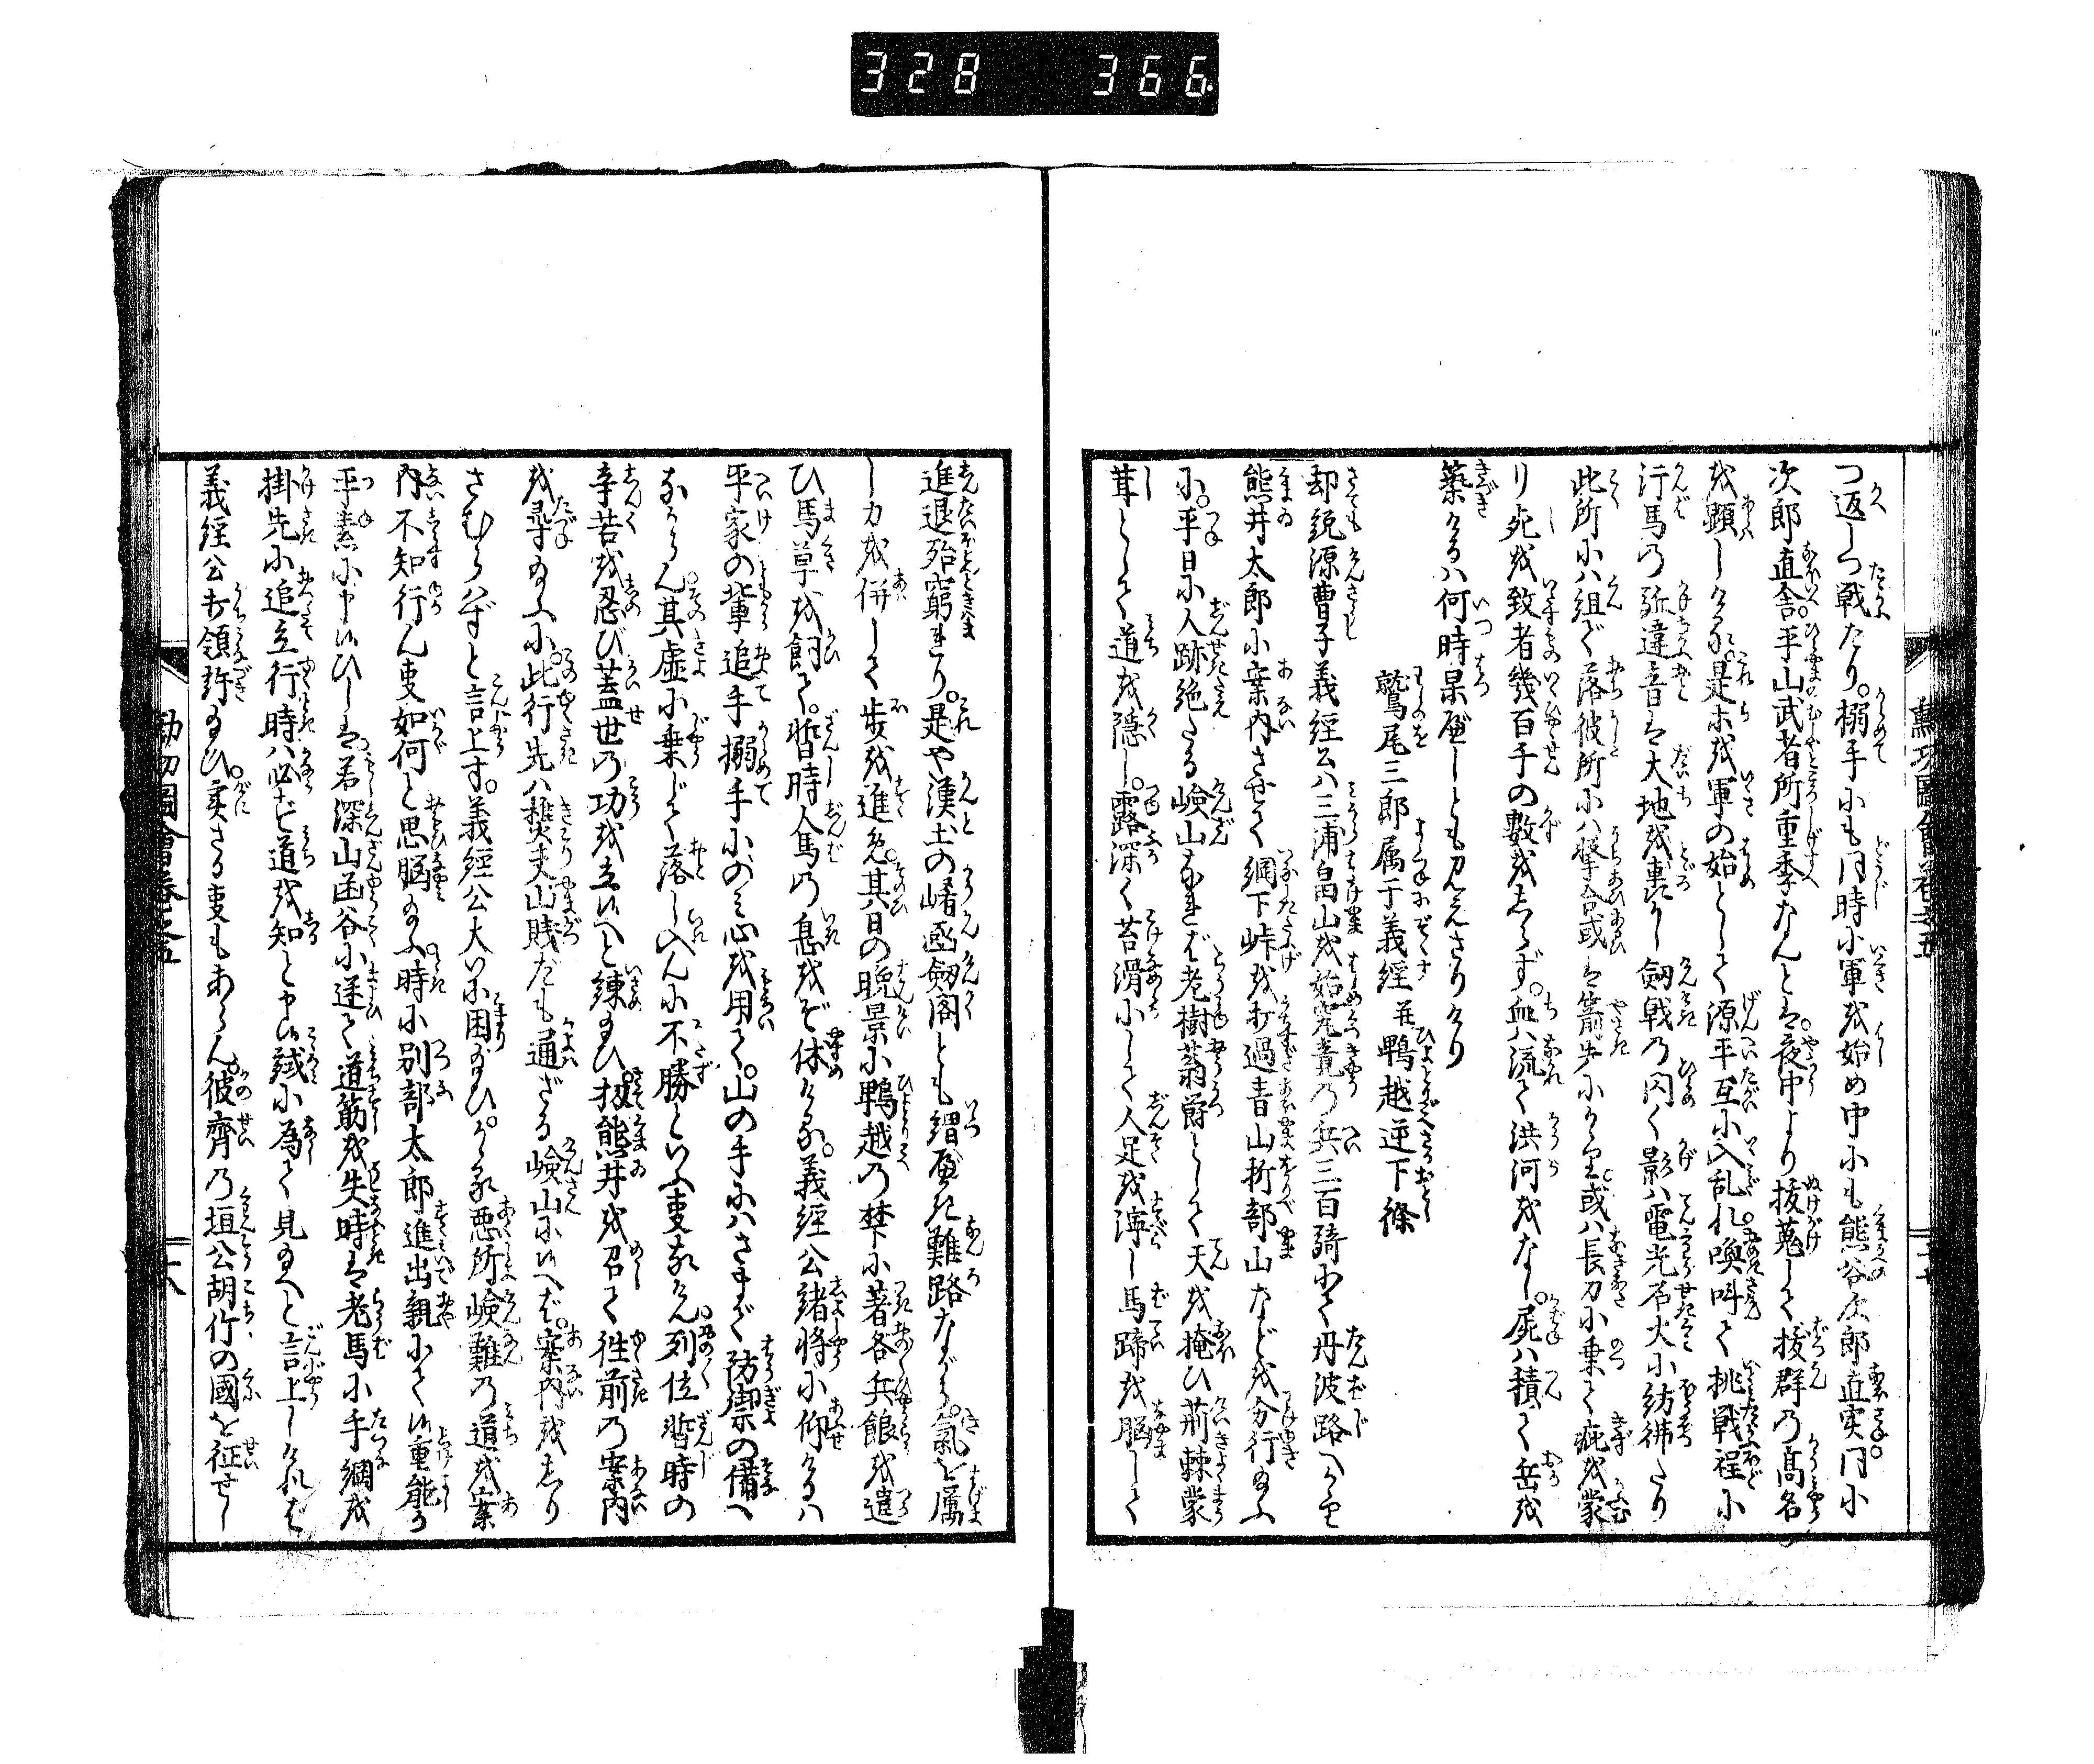 328 366
つ返しつ戦たり。搦手にも同時に軍を始め中にも熊谷次郎直実同小
次郎直家。平山武者所重季なんどは。夜中より抜蒐して抜群の高名
を顕しける。是等を軍の始として源平互に入乱れ。喚叫て挑戦程に
行馬の
違音は大地を
し劔戟の閃く影は電光石火に彷彿たり
此所には組で落彼所には撃合或は箭先にかゝり。或は長刀に乗て疵を蒙
り死を致者幾百千の数をしらず。血は流て洪河をなし。屍は積て岳を
築けるは何時果べしとも見えざりけり
鷲尾三郎属于義經並鵯越逆下條
却説源曹子義經公は三浦畠山を始究竟の兵三百騎にて丹波路へかゝり
熊井太郎に案内させて
綱下峠を打過青山折部山などを分行給ふ
に。平日に人跡絶たる嶮山なれば老樹蓊蔚として天を掩ひ荊棘蒙
茸として道を隠し。露深く苔滑にして人足を
し馬蹄を脳して
勲功圖會巻之五
進退殆窮まれり。是や漢土の崤凾劔閣とも謂べき難路ながら。氣を属
し力を併して歩を進め。其日の晩景に鵯越の梺に著各兵餉を遣
ひ馬草を飼て。暫時人馬の息をぞ休ける。義經公諸將に仰けるは
平家の輩追手搦手にのみ心を用て。山の手にはさまで防禦の備へ
なからん。其虚に乗じて落し入んに不勝といふ事なけん。列位暫時の
辛苦を忍び蓋世の功を立候へと練給ひ。扨熊井を召て往前の案内
を尋給ふに。此行先は樵夫山賎だも通ざる嶮山に候へば。案内をしり
さむらはずと言上す。義經公大いに困給ひ。かゝる悪所嶮難の道を案
内不知行ん事如何と思脳給ふ時に別部太郎進出親にて候重能が
平素に申候ひしは若深山凾谷に迷て道筋を失時は老馬に手綱を
掛先に追立行時は必ず道を知と申候誠に為て見給へと言上しければ
義經公打領許給ひ。実さる事もあらん。彼齊の垣公胡竹の國を征せし
勲功圖會巻之五 十八